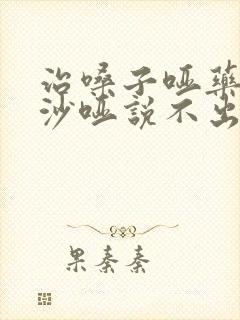 治嗓子哑藥
沙哑説不出
果秦秦